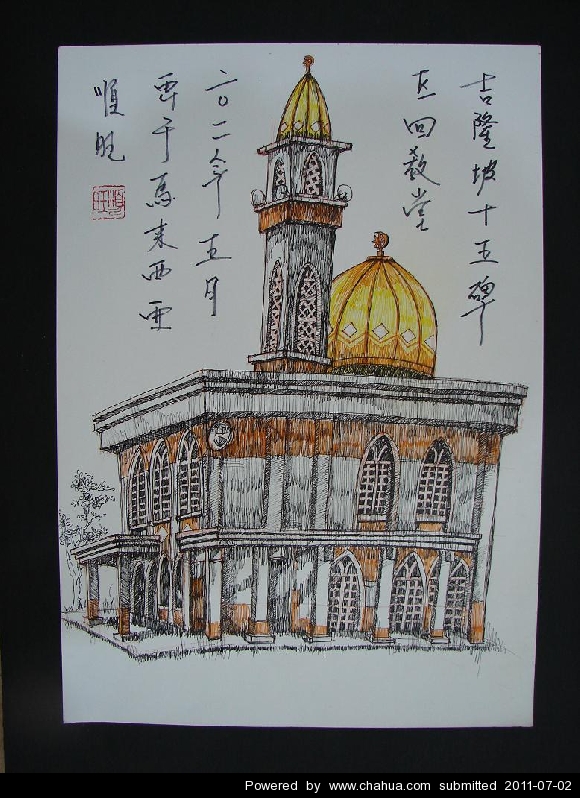 吉隆坡十五碑
区回教堂
二〇一一年五月
画于马来西亚
顺旺
Powered by www.chahua.com submitted 2011-07-02